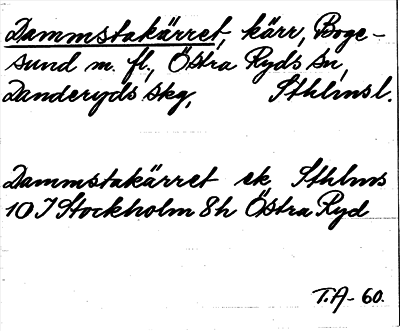 Dammstakärret, kärr, Boge-
sund m. fl., Östra Ryds sn,
Danderyds skg, Sthlms l.
Dammstakärret ek Sthlms
10 I Stockholm 8h Östra Ryd
T.A - 60.